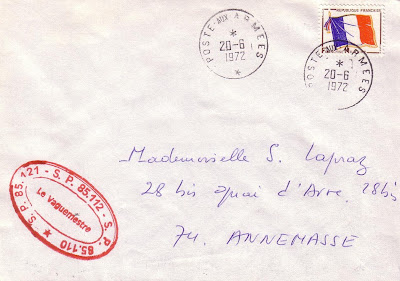 POSTE-AUX-ARMEES
*
20-6
1972
*
REPUBLIQUE FRANÇAISE
POSTE-AUX-ARMEES
*
20-6
1972
Mademoiselle S. Lapraz
28 bis quai d'Arve. 28bis
74. ANNEMASSE
* S. P. 85.121 - S. P. 85.112 - S. P. 85.110
Le Vaguemestre